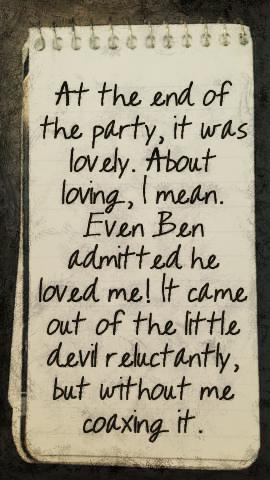 At the end of
the party, it was
lovely. About
loving, I mean.
Even Ben
admitted he
loved me! It came
out of the little
devil reluctantly,
but without me
coaxing it.